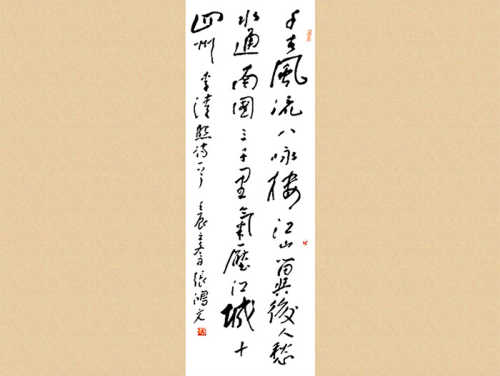 千古風流八咏樓江山留與後人愁
水通南國三千里氣壓江城十
四州 李清照詩一首 壬辰立春 張鴻元